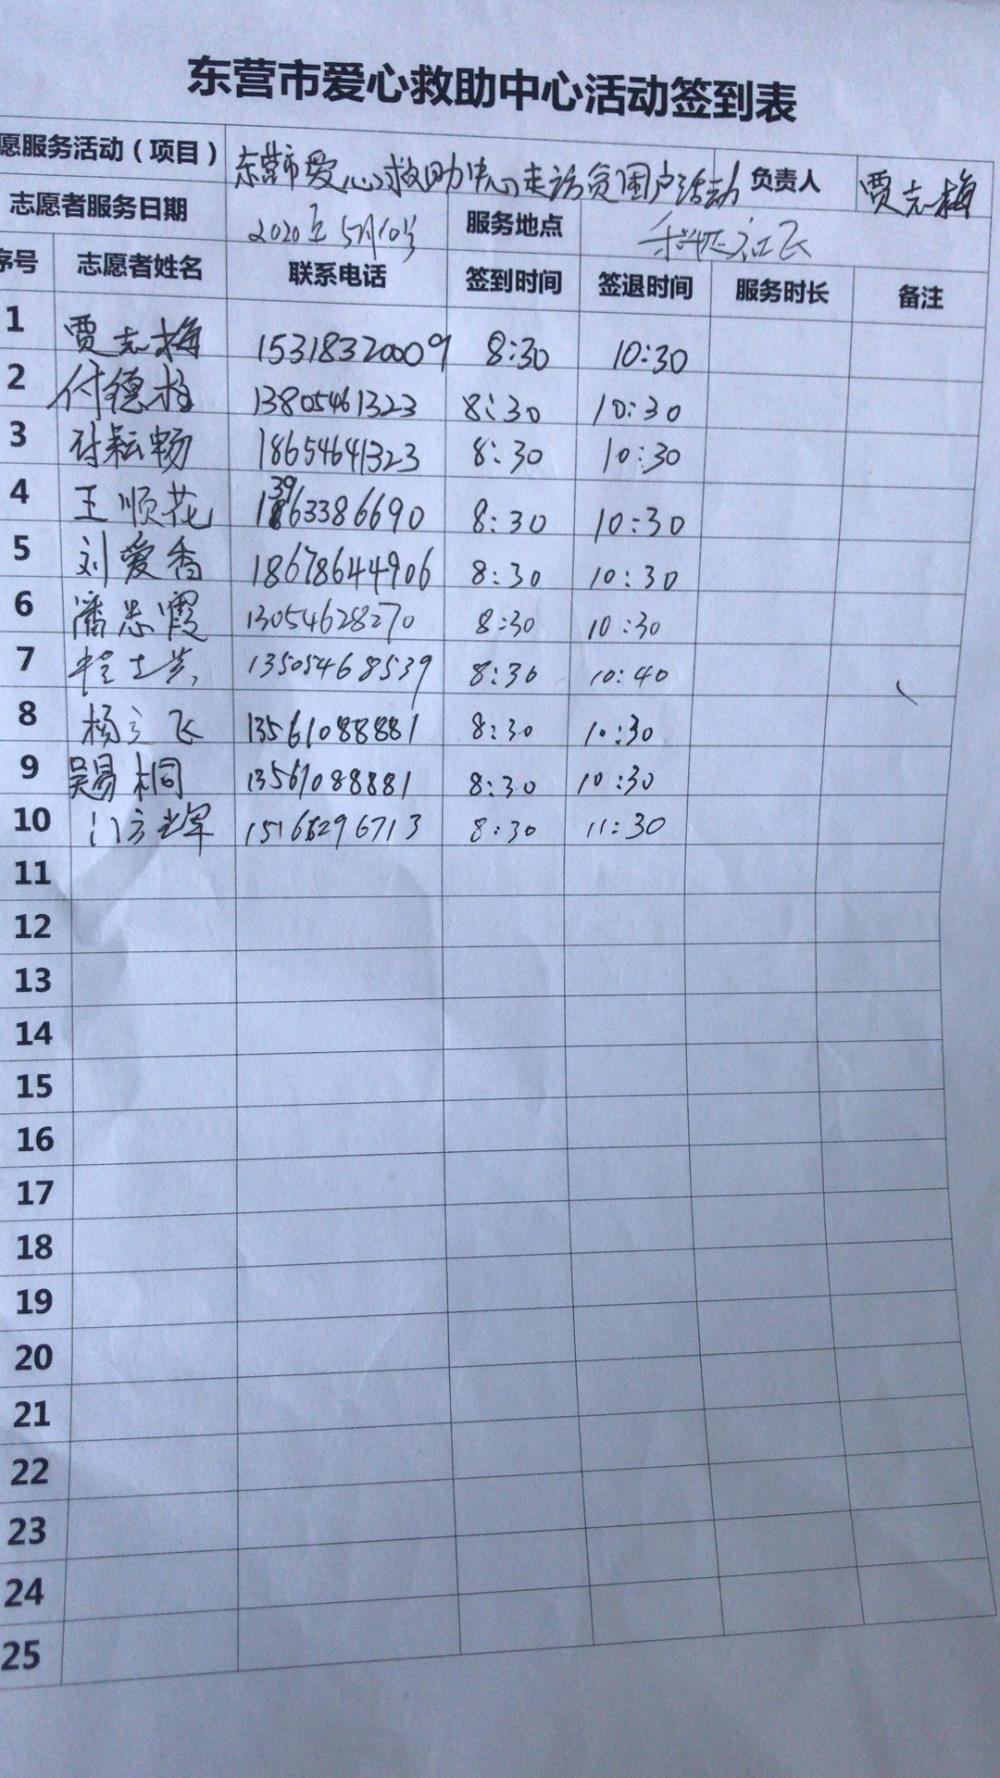 东营市爱心救助中心活动签到表
愿服务活动（项目） 东营市爱心救助中心走访贫困户活动 负责人 贾志梅
志愿者服务日期 2020年5月10号 服务地点
序号 志愿者姓名 联系电话 签到时间 签退时间 服务时长 备注
1 贾志梅 15318320009 8:30 10:30
2 付德 13805461323 8:30 10:30
3 付耘畅 18654641323 8:30 10:30
4 王顺花 13963386690 8:30 10:30
5 刘爱香 18678644906 8:30 10:30
6 潘忠霞 13054628270 8:30 10:30
7 13505468539 8:30 10:40
8 杨立飞 13561088881 8:30 10:30
9 桐 13561088881 8:30 10:30
10 8:30 11:30
11
12
13
14
15
16
17
18
19
20
21
22
23
24
25